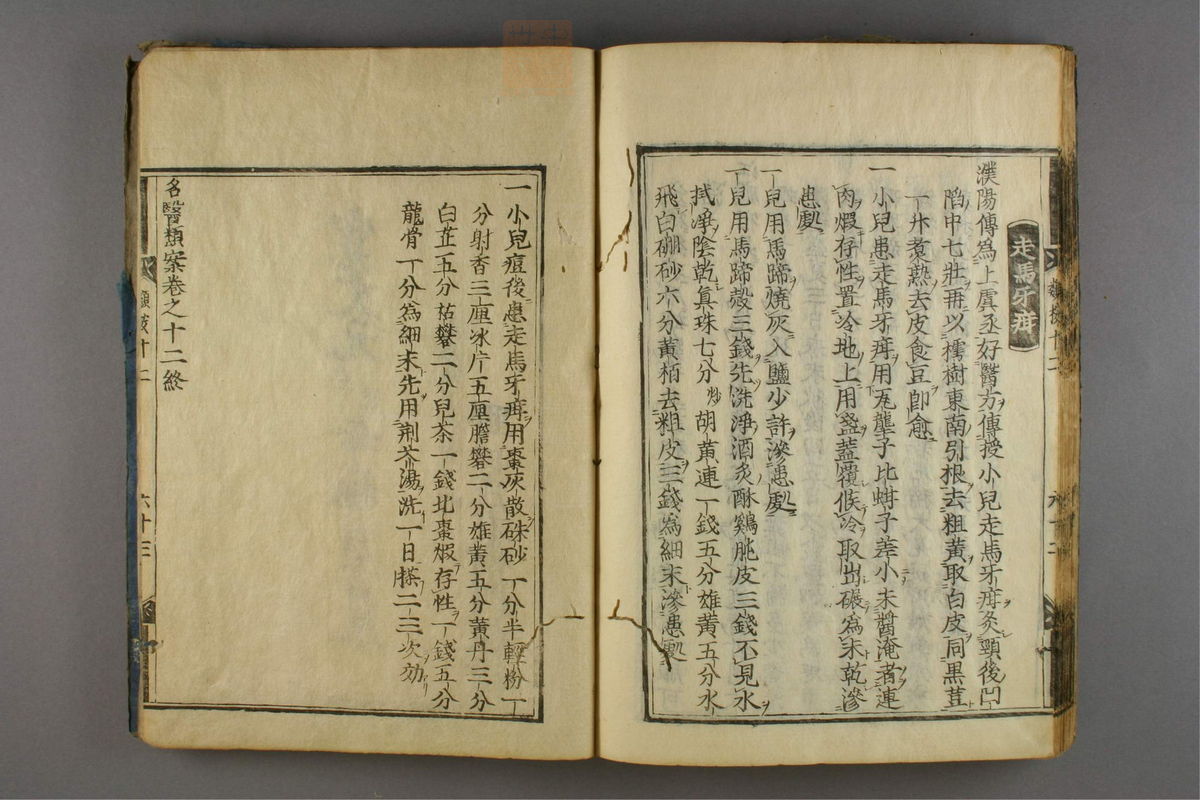 走馬牙疳
濮陽傳爲上虞丞好醫方傳授小兒走馬牙疳灸頸後凹
陷中七壯再以樗樹東南引根去粗黃取白皮同黑荳
一升煮熟去皮食豆卽愈
一 小兒患走馬牙疳用瓦壟子比蚶子差小未醬淹者連
肉煆存性置冷地上用盞蓋覆候冷取出碾爲末乾滲
患處
一 兒用馬蹄燒灰入鹽少許滲患處
一 兒用馬蹄殼三錢先洗淨酒炙酥鷄肶皮三錢不見水
拭淨陰乾眞珠七分炒胡黃連一錢五分雄黃五分水
飛白硼砂六分黃栢去粗皮三錢爲細末滲患處
一 小兒痘後患走馬牙疳用棗灰散硃砂一分半輕粉一
分射香三厘冰片五厘膽礬二分雄黃五分黃丹三分
白芷五分枯礬二分兒茶一錢北棗煆存性一錢五分
龍骨一分爲細末先用荆芥湯洗一日搽二三次効
名醫類案卷之十二終
六十三